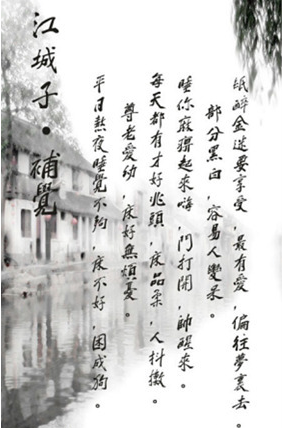 江城子·補覺
平日熬夜睡覺不夠，床不好，困成狗。
尊老愛幼，床好無煩憂。
每天都有才好兆頭，床品柔，人抖擻。
睡你麻痹起來嗨，門打開，帥醒來。
部分黑白，容易人變呆。
紙醉金迷要享愛，最有愛，偏往夢裏去。